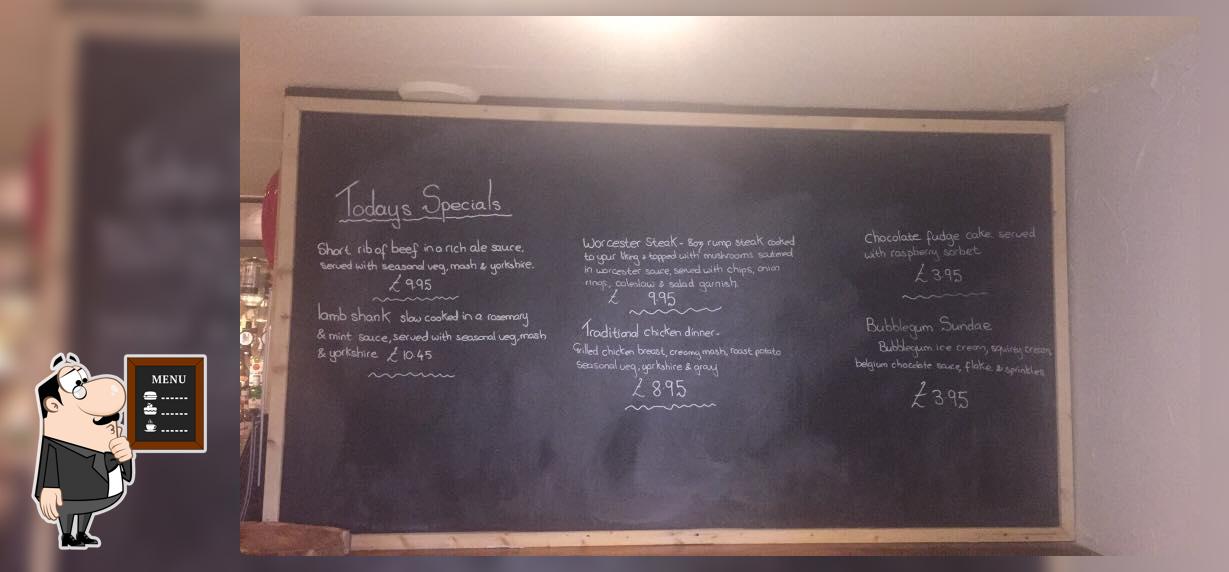 Todays Specials
Short rib of beef in a rich ale sauce,
served with seasonal veg, mash & yorkshire.
£9.95
lamb shank slow cooked in a rosemary
& mint sauce, served with seasonal veg, mash
& yorkshire £10.45
Worcester Steak - 8oz rump steak cooked
to your liking & topped with mushrooms sauteed
in worcester sauce, served with chips, onion
rings, coleslaw & salad garnish.
£ 9.95
Traditional chicken dinner -
Grilled chicken breast, creamy mash, roast potato
Seasonal veg, yorkshire & gravy
£8.95
Chocolate fudge cake served
with raspberry sorbet
£3.95
Bubblegum Sundae
Bubblegum ice cream, squirty cream,
belgium chocolate sauce, flake & sprinkles
£3.95
MENU